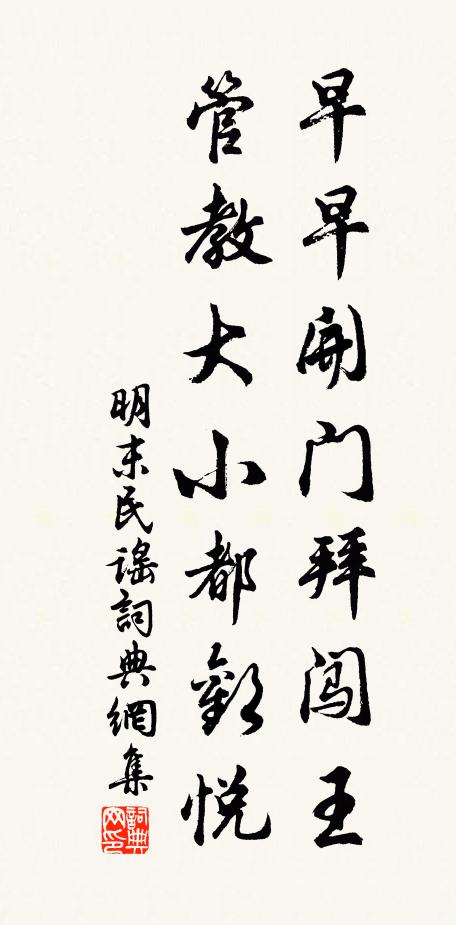 早早開门拜闯王
管教大小都歡悅
明末民謠詞典網集
詞典网印